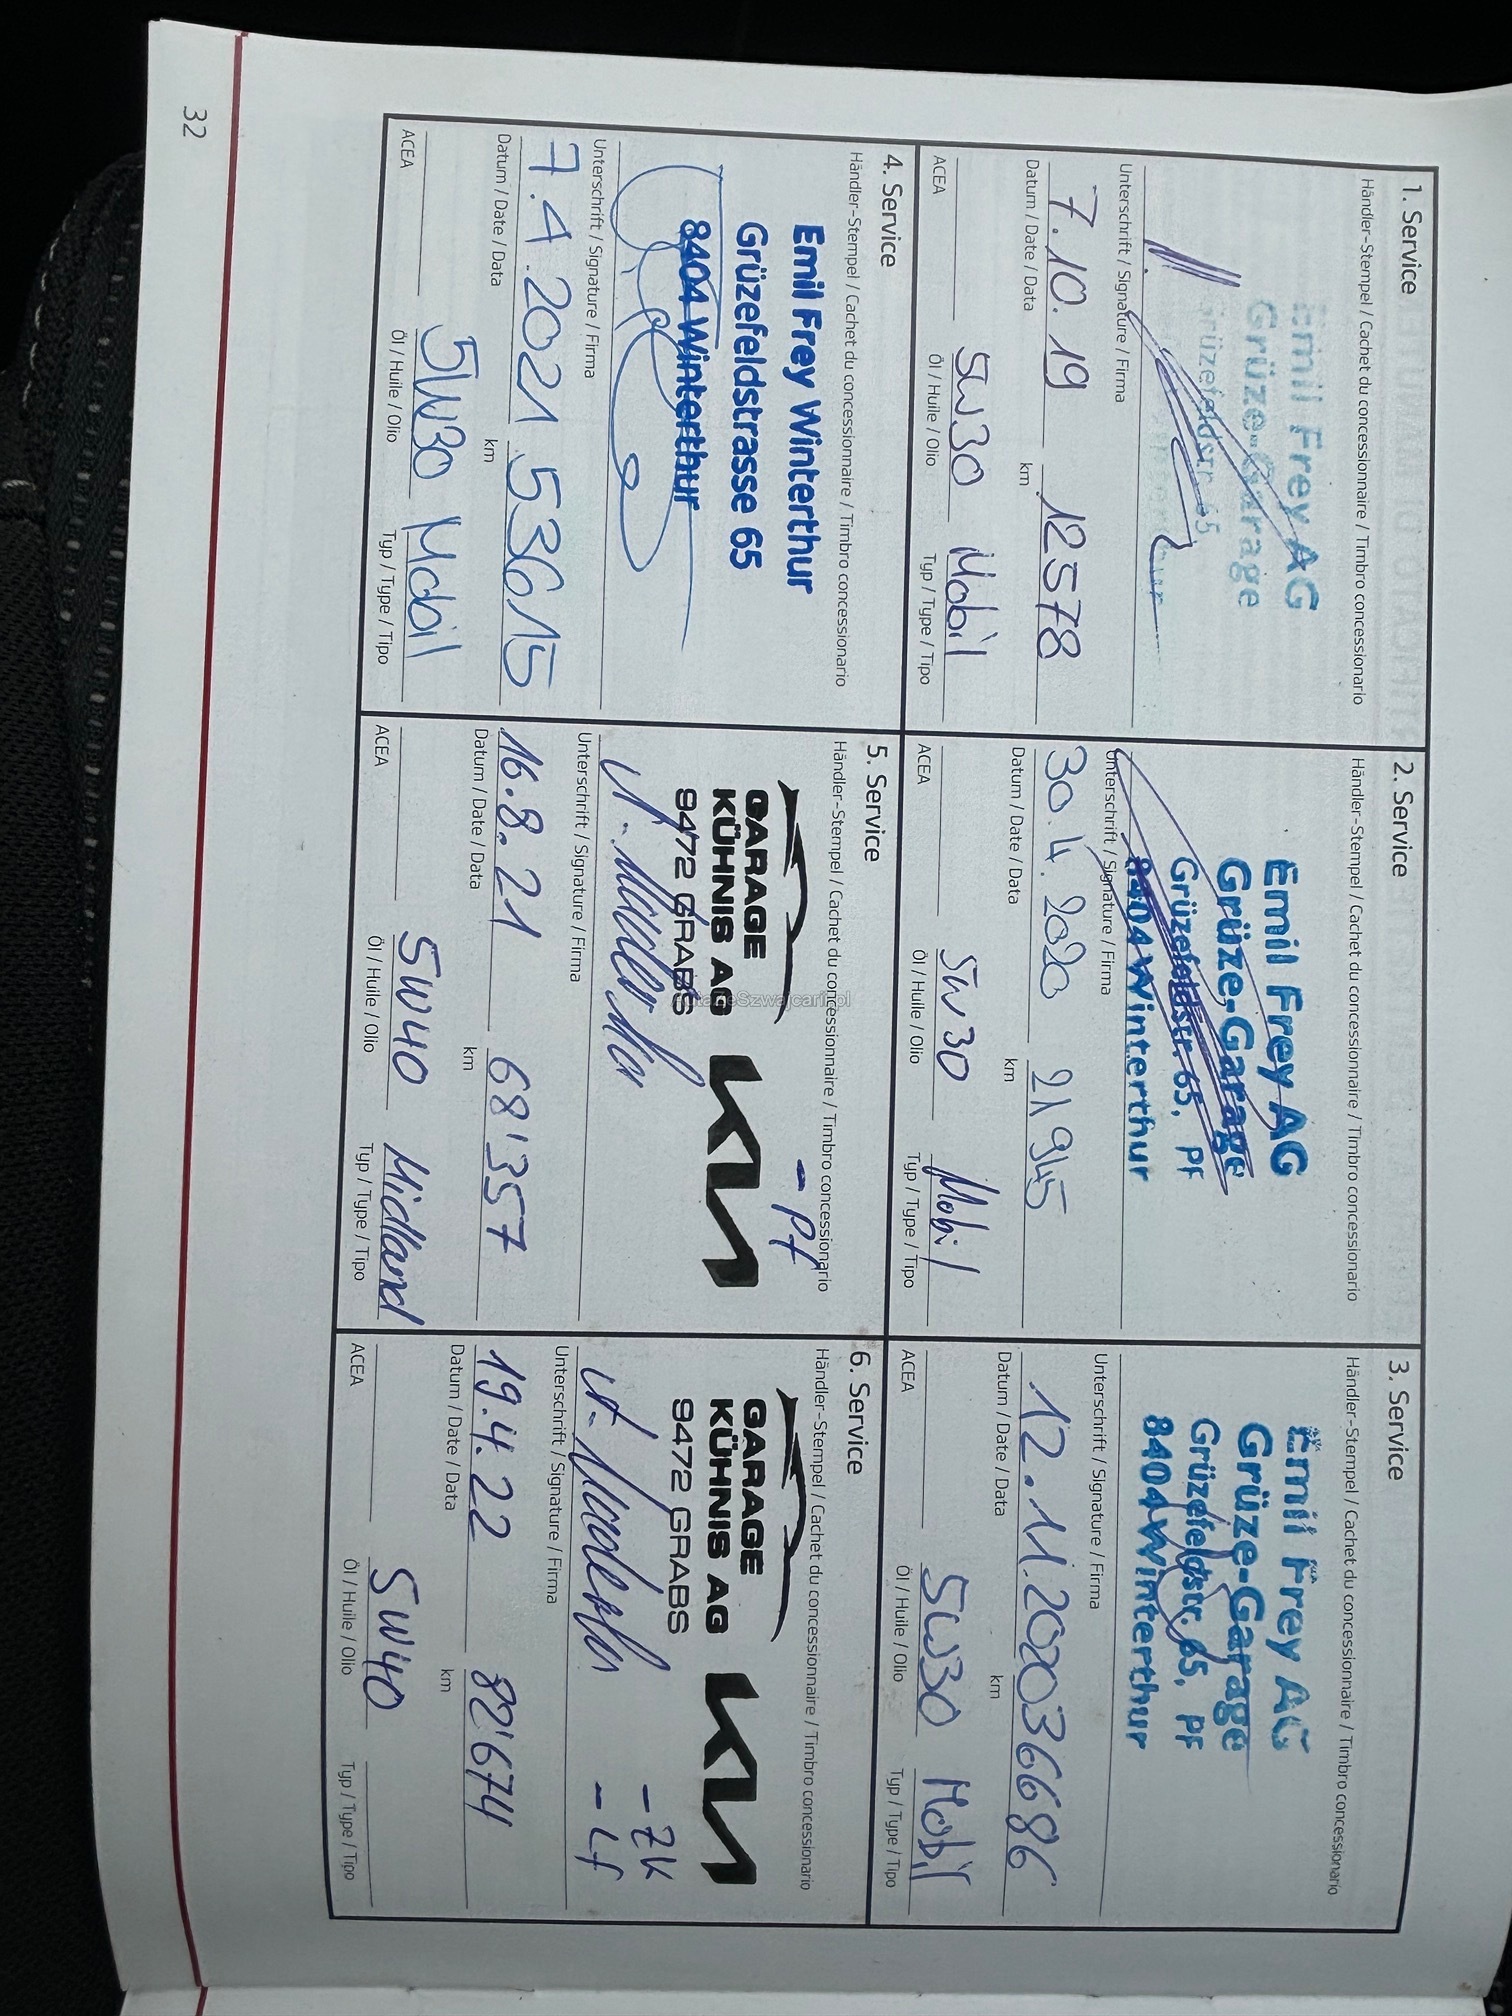 1. Service
Händler-Stempel / Cachet du concessionnaire / Timbro concessionario
Emil Frey AG
Grüze-Garage
Grüzefeldstr. 65,
Unterschrift / Signature / Firma
7.10.19 12578
Datum / Date / Data km
5W30 Mobil
ACEA Öl / Huile / Olio Typ / Type / Tipo
2. Service
Händler-Stempel / Cachet du concessionnaire / Timbro concessionario
Emil Frey AG
Grüze-Garage
Grüzefeldstr. 65, PF
8404 Winterthur
Unterschrift / Signature / Firma
30.4.2020 21945
Datum / Date / Data km
5W30 Mobil
ACEA Öl / Huile / Olio Typ / Type / Tipo
3. Service
Händler-Stempel / Cachet du concessionnaire / Timbro concessionario
Emil Frey AG
Grüze-Garage
Grüzefeldstr. 65, PF
8404 Winterthur
Unterschrift / Signature / Firma
12.11.2020 36686
Datum / Date / Data km
5W30 Mobil
ACEA Öl / Huile / Olio Typ / Type / Tipo
4. Service
Händler-Stempel / Cachet du concessionnaire / Timbro concessionario
Emil Frey Winterthur
Grüzefeldstrasse 65
8404 Winterthur
Unterschrift / Signature / Firma
7.4.2021 53615
Datum / Date / Data km
5W30 Mobil
ACEA Öl / Huile / Olio Typ / Type / Tipo
5. Service
Händler-Stempel / Cachet du concessionnaire / Timbro concessionario
- Pf
GARAGE
KÜHNIS AG KIA
9472 GRABS
Unterschrift / Signature / Firma
16.8.21 68'357
Datum / Date / Data km
5W40 Midland
ACEA Öl / Huile / Olio Typ / Type / Tipo
6. Service
Händler-Stempel / Cachet du concessionnaire / Timbro concessionario
GARAGE
KÜHNIS AG KIA
9472 GRABS
- ZK
- Lf
Unterschrift / Signature / Firma
19.4.22 82'674
Datum / Date / Data km
5W40
ACEA Öl / Huile / Olio Typ / Type / Tipo
32